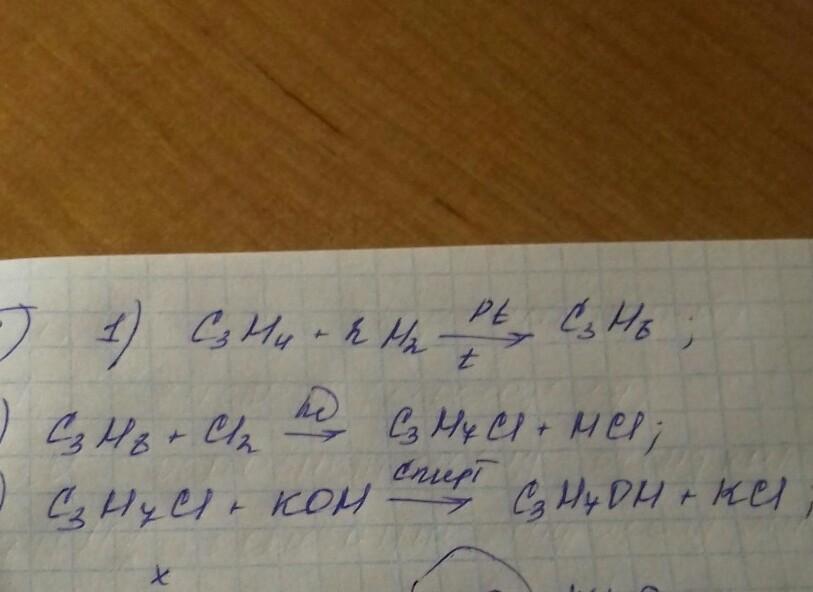 1) C₃H₄ + 2H₂ →(Pt, t) C₃H₈ ;
C₃H₈ + Cl₂ →(hν) C₃H₇Cl + HCl ;
C₃H₇Cl + KOH →(спирт) C₃H₇OH + KCl ;
x